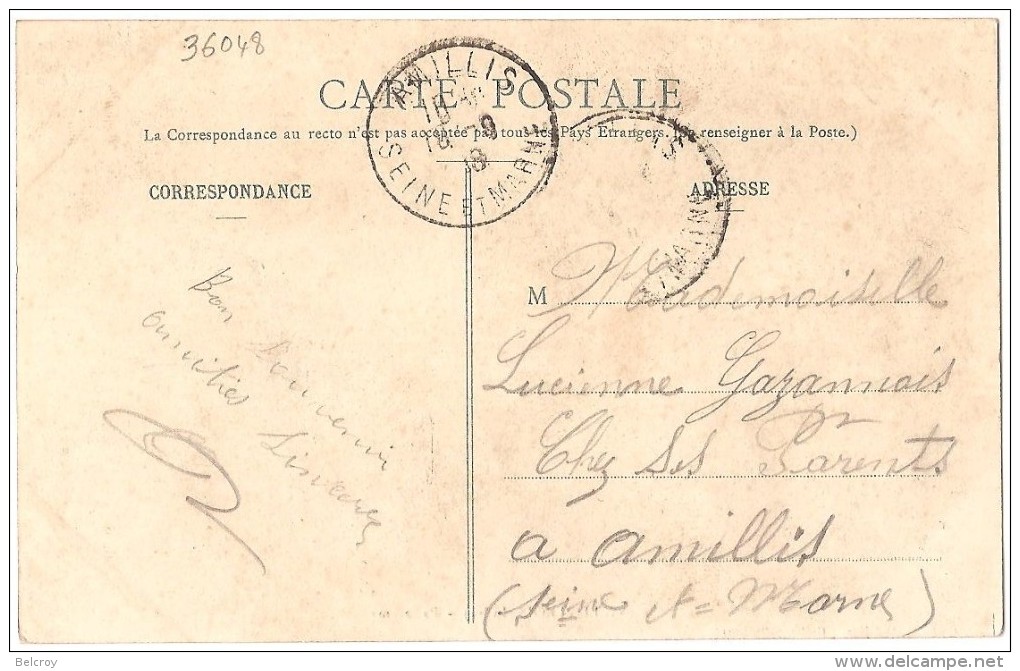 36048
CARTE POSTALE
La Correspondance au recto n'est pas acceptée par tous les Pays Etrangers. (Se renseigner à la Poste.)
AMILLIS
SEINE ET MARNE
CORRESPONDANCE
ADRESSE
Bon Souvenir
amitiés Sincères
M Mademoiselle
Lucienne Gazannois
Chez Ses Parents
a amillis
(Seine et = Marne)
Belcroy
www.delcampe.net